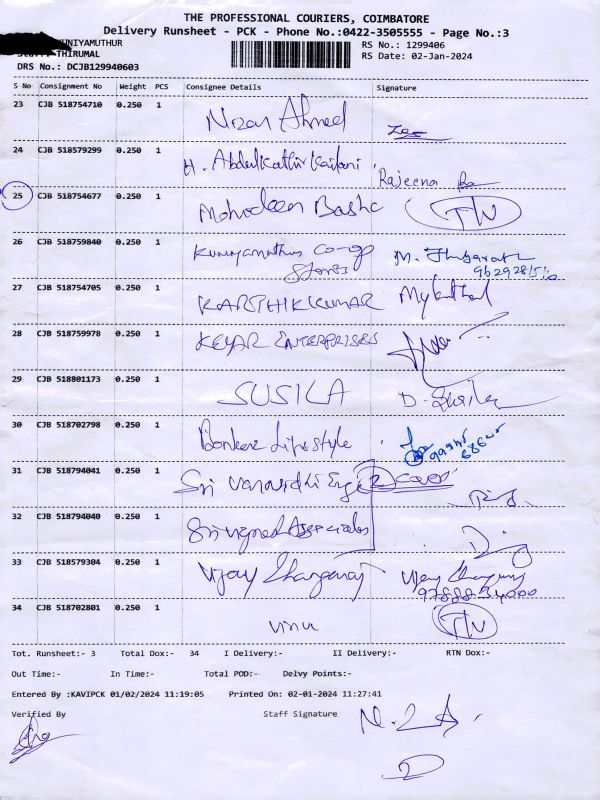 THE PROFESSIONAL COURIERS, COIMBATORE
Delivery Runsheet - PCK - Phone No.:0422-3505555 - Page No.:3
UNIYAMUTHUR
RS No.: 1299406
THIRUMAL
RS Date: 02-Jan-2024
DRS No.: DCJB129940603
S No Consignment No Weight PCS Consignee Details Signature
23 CJB 518754710 0.250 1 Nizar Ahmed
24 CJB 518579299 0.250 1 H. Abdul Kathir Kailani Rajeena
25 CJB 518754677 0.250 1 Mohideen Basha
26 CJB 518759840 0.250 1 Kuniyamuthur Co-op
Stores
27 CJB 518754705 0.250 1 KARTHIKKUMAR
28 CJB 518759978 0.250 1 KEYAR ENTERPRISES
29 CJB 518801173 0.250 1 SUSILA
30 CJB 518702798 0.250 1 Lifestyle
31 CJB 518794041 0.250 1 Sri 2 cover
32 CJB 518794040 0.250 1 Associates
33 CJB 518579304 0.250 1 Vijay Vijay
34 CJB 518702801 0.250 1 vinu
Tot. Runsheet:- 3 Total Dox:- 34 I Delivery:- II Delivery:- RTN Dox:-
Out Time:- In Time:- Total POD:- Delvy Points:-
Entered By :KAVIPCK 01/02/2024 11:19:05 Printed On: 02-01-2024 11:27:41
Verified By Staff Signature